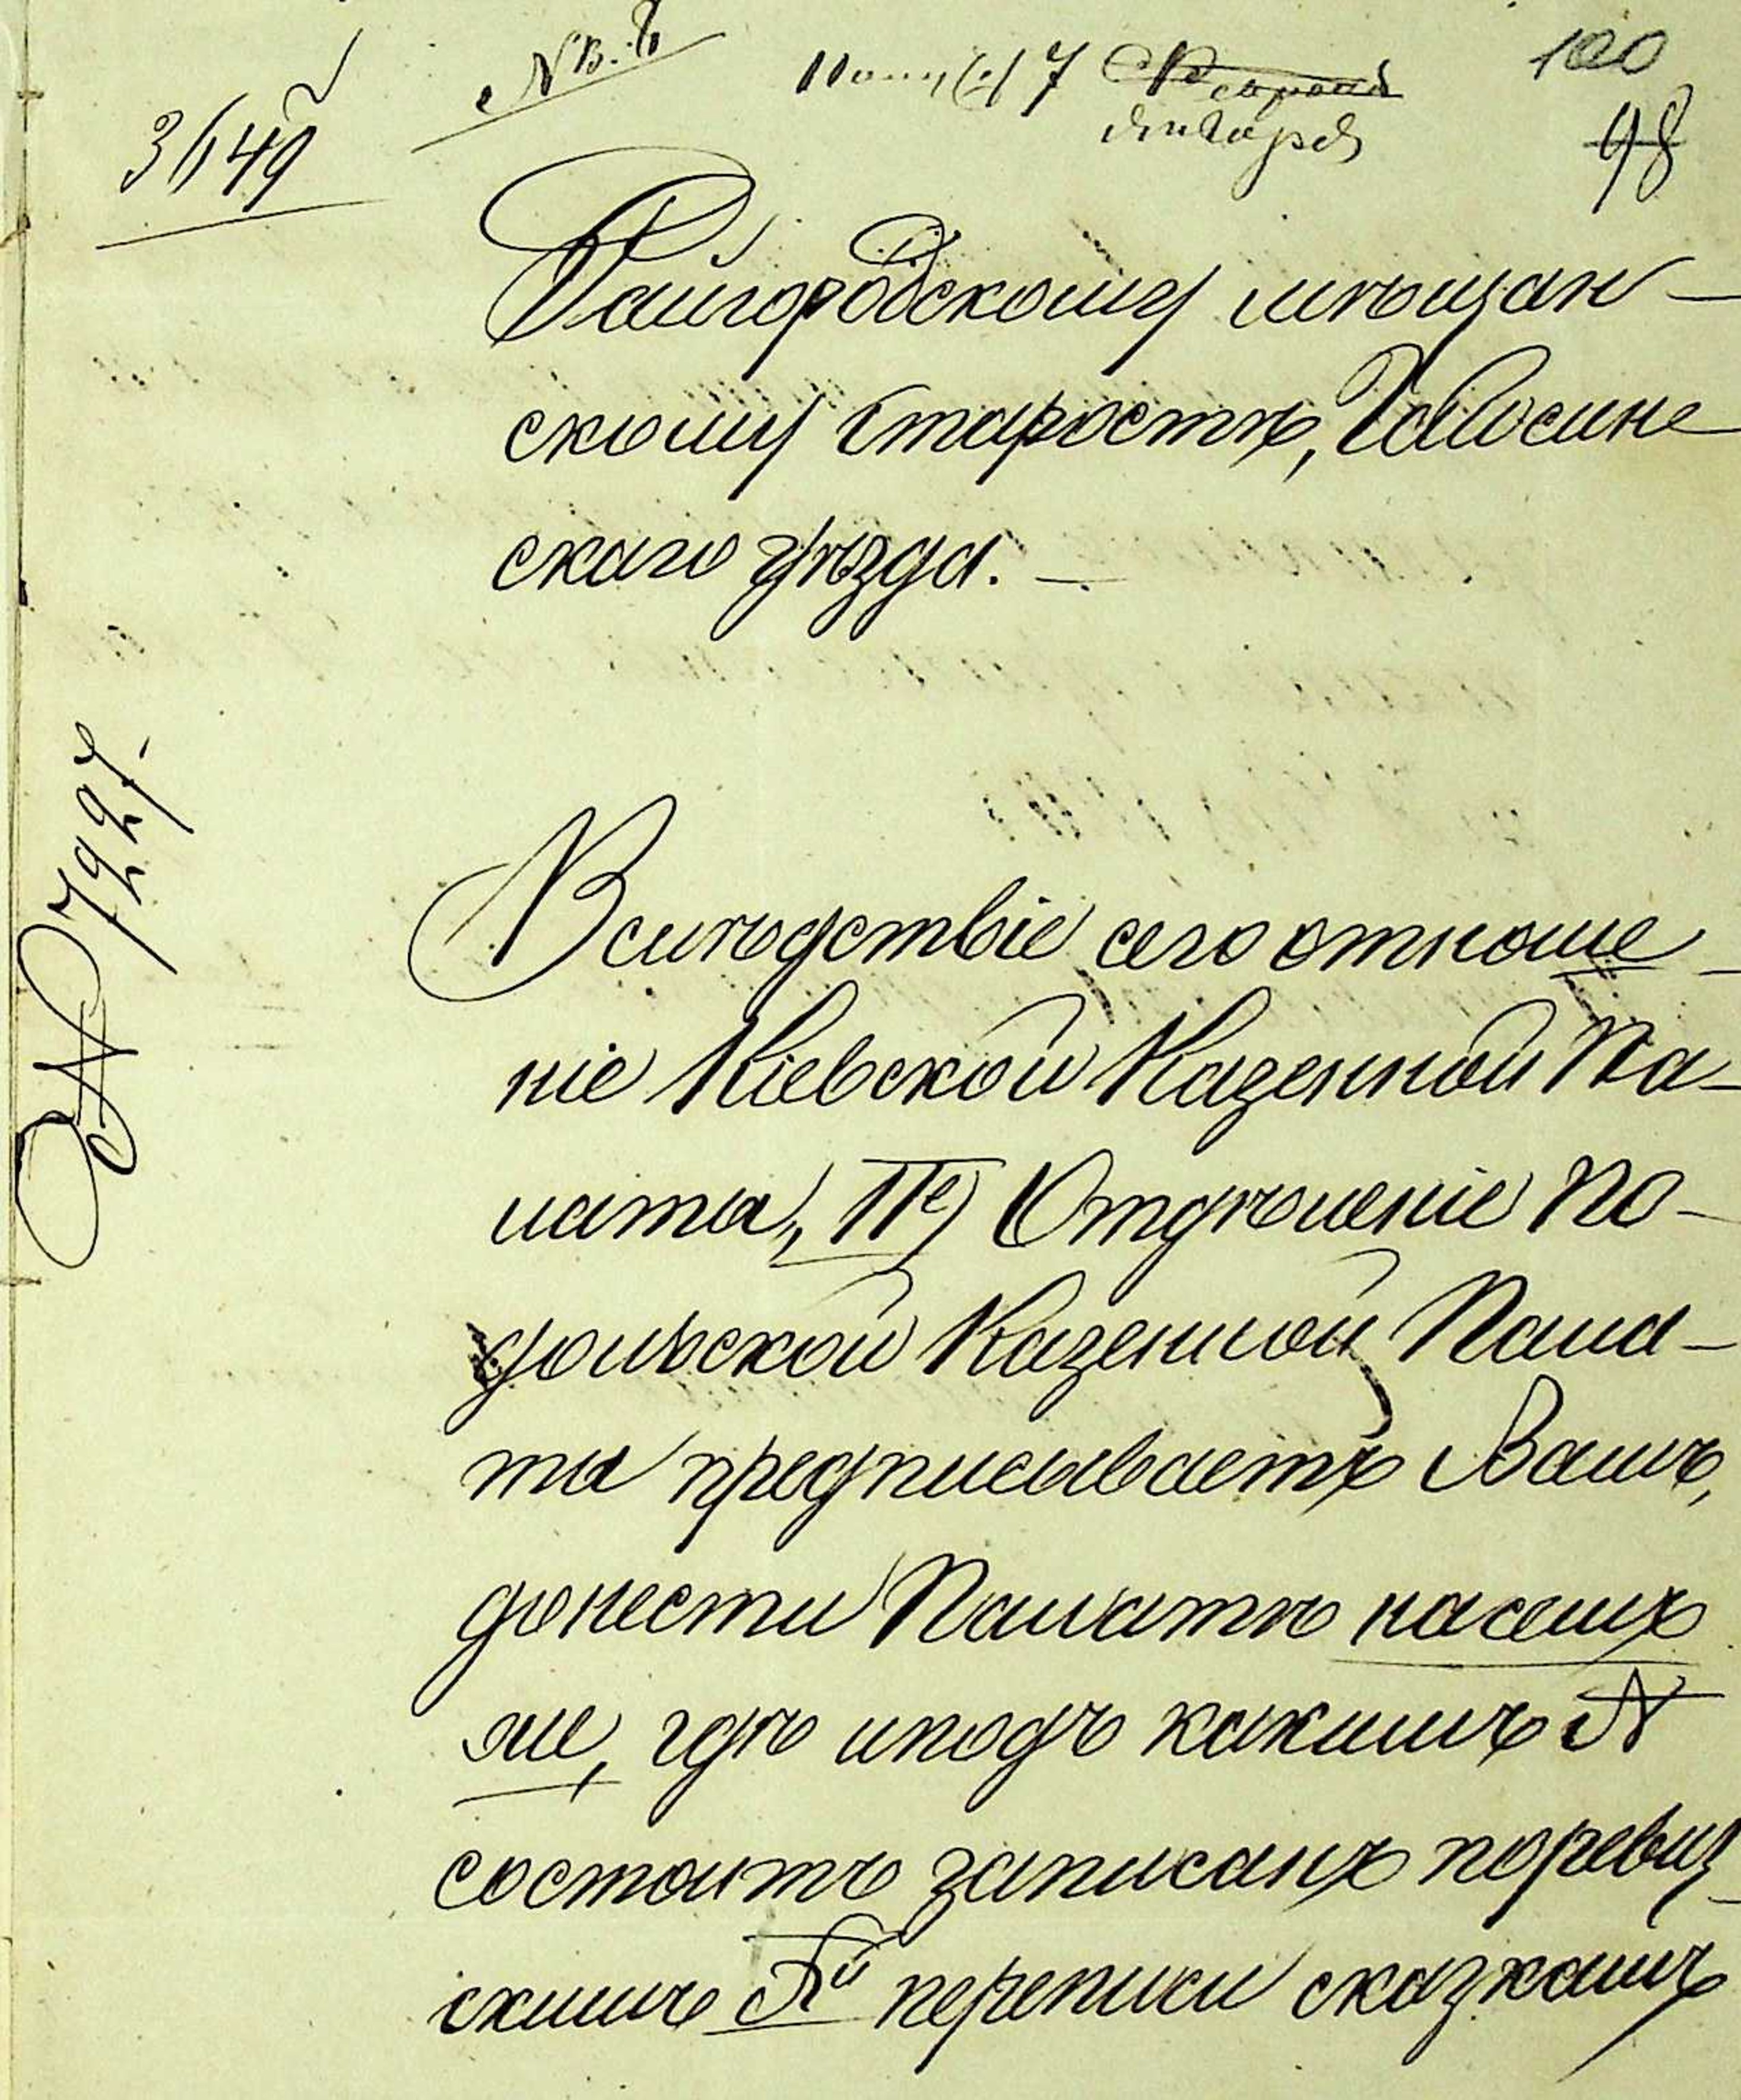 100
7
января
98
3649
Райгородскому мѣщан-
скому Старостѣ, Гайсин-
скаго уѣзда. —
№ 7927.
Вслѣдствіе сего отноше-
ніе Кіевской Казенной Па-
латы, IIе Отдѣленіе По-
дольской Казенной Пала-
ты предписываетъ Вамъ,
донести Палатѣ на семъ
же, гдѣ и подъ какимъ №
состоитъ записанъ по ревиз-
скимъ Хй переписи сказкамъ